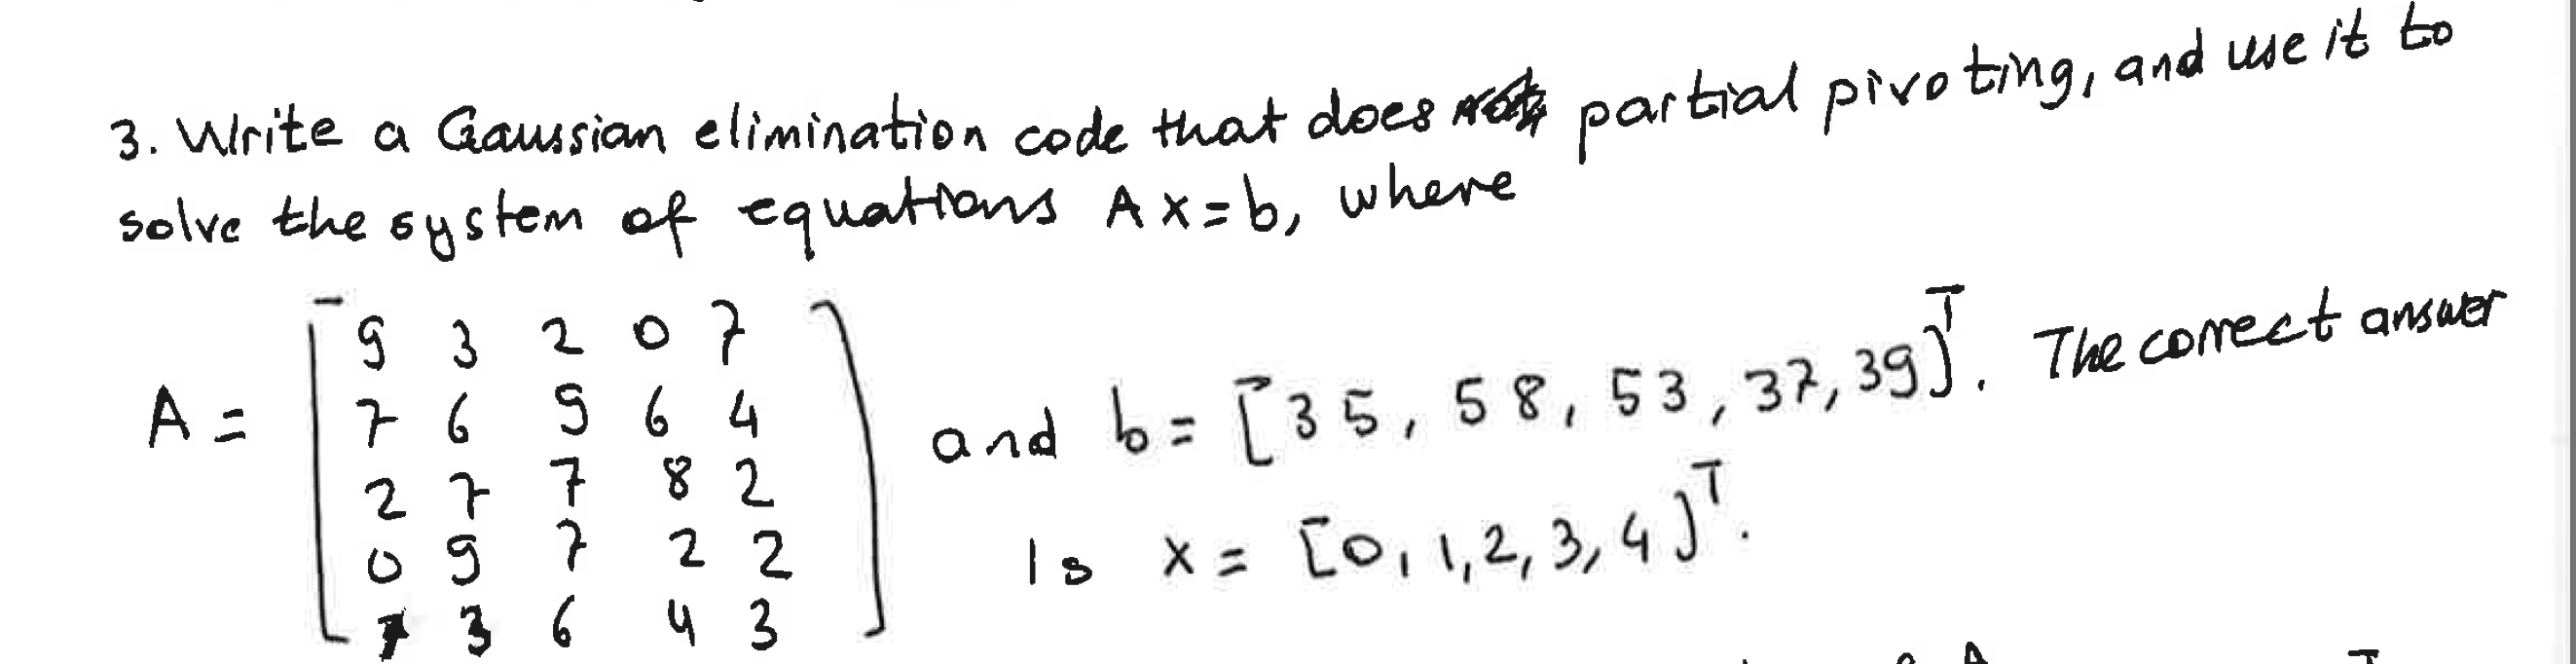 3. Write a Gaussian elimination code that does partial pivoting, and use it to
solve the system of equations Ax=b, where
9 3 2 0 7
A = 7 6 9 6 4 and b = [35, 58, 53, 37, 39]ᵀ. The correct answer
2 7 7 8 2
0 9 7 2 2 is x = [0, 1, 2, 3, 4]ᵀ.
3 6 4 3